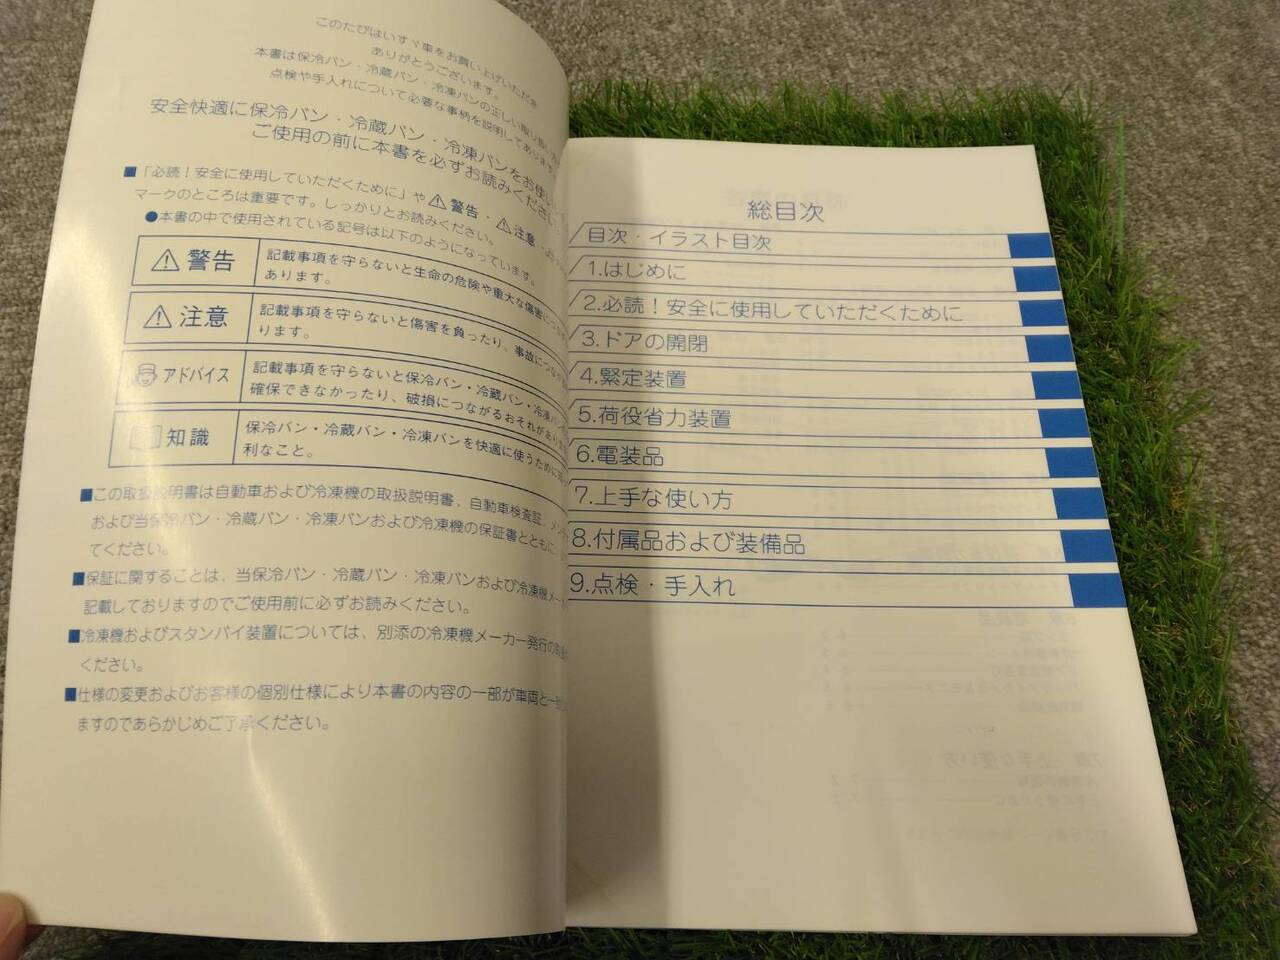 このたびはいすゞ車をお買い上げいただき
ありがとうございます。
本書は保冷バン・冷蔵バン・冷凍バンの正しい取り扱い
点検や手入れについて必要な事柄を説明してあります
安全快適に保冷バン・冷蔵バン・冷凍バンをお使い
ご使用の前に本書を必ずお読みください
■「必読！安全に使用していただくために」や⚠警告・⚠注意・
マークのところは重要です。しっかりとお読みください。
●本書の中で使用されている記号は以下のようになっています。
⚠警告
記載事項を守らないと生命の危険や重大な傷害につな
あります。
⚠注意
記載事項を守らないと傷害を負ったり、事故につな
ります。
アドバイス
記載事項を守らないと保冷バン・冷蔵バン・冷凍バ
確保できなかったり、破損につながるおそれがありま
知識
保冷バン・冷蔵バン・冷凍バンを快適に使うために
利なこと。
■この取扱説明書は自動車および冷凍機の取扱説明書、自動車検査証、メン
および当保冷バン・冷蔵バン・冷凍バンおよび冷凍機の保証書とともに、
てください。
■保証に関することは、当保冷バン・冷蔵バン・冷凍バンおよび冷凍機メー
記載しておりますのでご使用前に必ずお読みください。
■冷凍機およびスタンバイ装置については、別添の冷凍機メーカー発行の取
ください。
■仕様の変更およびお客様の個別仕様により本書の内容の一部が車両と一
ますのであらかじめご了承ください。
総目次
目次・イラスト目次
1.はじめに
2.必読！安全に使用していただくために
3.ドアの開閉
4.緊定装置
5.荷役省力装置
6.電装品
7.上手な使い方
8.付属品および装備品
9.点検・手入れ